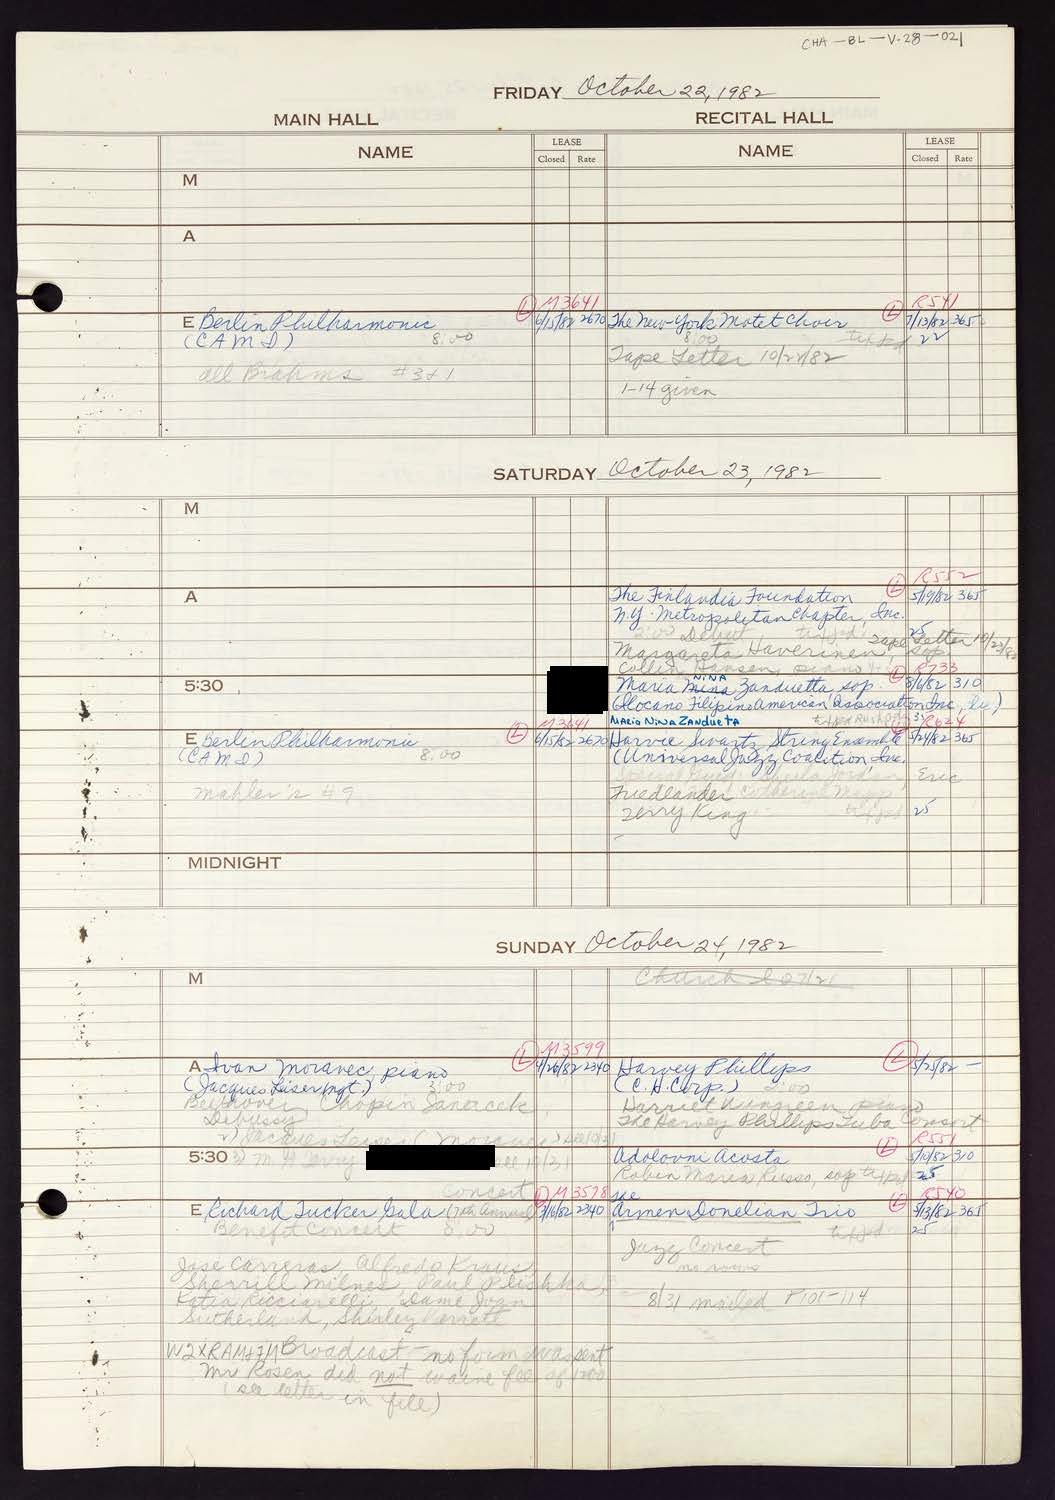 CHA-BL-V-28-021
FRIDAY October 22, 1982
MAIN HALL
RECITAL HALL
NAME
LEASE
Closed Rate
NAME
LEASE
Closed Rate
M
A
Ⓛ M3641
Ⓛ R541
E Berlin Philharmonic 6/15/82 2670
The New York Motet Choir 7/13/82 365
(CAMI) 8:00
8:00 22
Tape Letter 10/22/82
all Brahms #3+1
1-14 given
SATURDAY October 23, 1982
M
Ⓛ R552
A
The Finlandia Foundation 5/19/82 365
N.Y. Metropolitan Chapter, Inc.
2:00 Debut 25
Tape Letter 10/23/82
Margareta Haverinen, sop.
Collin Hansen, piano
Ⓛ R733
5:30
NINA
Maria Nina Zanduetta sop. 8/6/82 310
(Ilocano Filipino American Association Inc,
MARIA NINA ZANDUETA
Ⓛ M3641
R624
E Berlin Philharmonic 6/15/82 2670
Harvie Swartz String Ensemble 5/24/82 365
(CAMI) 8:00
(Universal Jazz Coalition, Inc.
Special Guest: Sheila Jordan, Eric
Mahler's #9
Friedlander
Terry King 25
MIDNIGHT
SUNDAY October 24, 1982
M
Church
Ⓛ M3599
Ⓛ
A Ivan Moravec, piano 4/26/82 2340
Harvey Phillips 5/25/82 —
(Jacques Leiser Mgt.) 3:00
(C.H. Corp.) 2:00
Beethoven Chopin Janacek
Debussy
Harriet Wingreen piano
The Harvey Phillips Tuba Consort
Ⓛ R551
5:30
10/31
Adolovni Acosta 5/10/82 310
Robin Maria Russo, sop 25
concert Ⓛ M3578
Ⓛ R540
E Richard Tucker Gala (7th Annual 3/16/82 2340
The
Armen Donelian Trio 5/13/82 365
Benefit Concert 8:00
25
Jazz Concert
Jose Carreras, Alfredo Kraus
Sherrill Milnes, Paul Plishka,
Katia Ricciarelli, Dame Joan
Sutherland, Shirley Verrett
8/31 mailed P101-114
WQXR AM+FM Broadcast - no form was sent
Mr Rosen did not waive fee of 1200
(see letter in file)